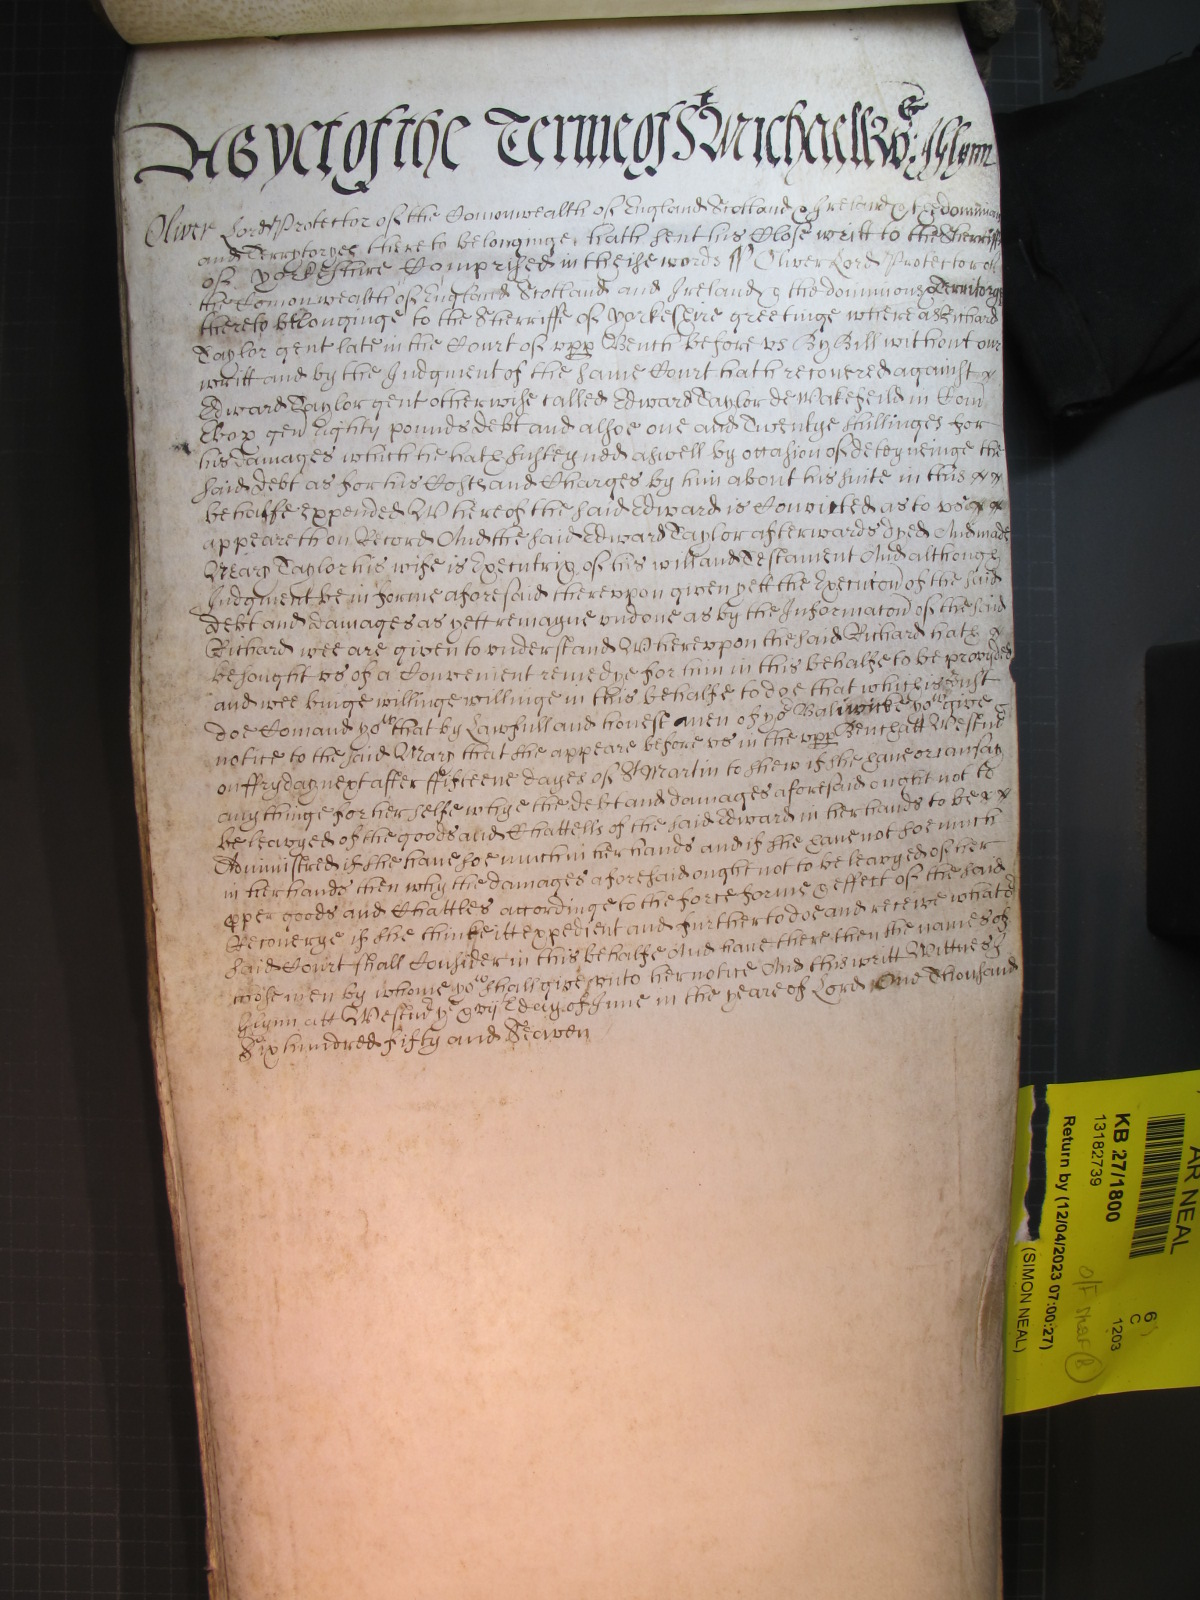 As yet of the Terme of St Michaell Wittn: Glynn
Oliver Lord Protector of the Comonwealth of England Scotland & Ireland & the dominions
and Terrytoryes there to belonginge, hath sent his Close writt to the Sherriffe
of Yorkeshire Comprised in theise words ss Oliver Lord Protector of
the Comonwealth of England Scotland and Ireland & the dominions & Territorys
thereto belonginge to the Sherriffe of Yorkeshire greetinge whereas Richard
Taylor gent late in the Court of vpp Bench before vs By Bill without our
writt and by the Judgment of the same Court hath recovered against x
Edward Taylor gent otherwise called Edward Taylor de Wakefeild in Com
Ebor gen Eighty pounds debt and alsoe one and Twentye shillinges for
his Damages which he hath susteyned aswell by occasion of deteyneinge the
said debt as for his Costs and Charges by him about his suite in this x x
behalfe expended Whereof the said Edward is Convicted as to vs x x
appeareth on Record And the said Edward Taylor afterwards dyed And made
Mary Taylor his wife is Executrix of his will and Testament And although
Judgment be in forme aforesaid therevpon given yett the Execucon of the said
debt and damages as yett remayne vndone as by the Informacon of the said
Richard wee are given to vnderstand Wherevpon the said Richard hath x
besought vs of a Convenient remedye for him in this behalfe to be provyded
and wee beinge willinge willinge in this behalfe to doe that which is Just
doe Comand you that by Lawfull and honest men of yor Baliwicke you give
notice to the said Mary that she appeare before vs in the vpp Bench att Westm
on ffryday next after ffifteene dayes of St Martin to shew if she have or can say
any thinge for her selfe whye the debt and damages aforesaid ought not to
be leavyed of the goods and Chattells of the said Edward in her hands to be x x
Administred if she have soe much in her hands and if she have not soe much
in her hands then why the damages aforesaid ought not to be leavyed of her
pper goods and Chattles accordinge to the force forme & effect of the said
Recoverye if she thinke itt expedient and further to doe and receive what
said Court shall Consider in this behalfe And have there then the names of
those men by whome you shall give vnto her notice And this writt Wittnes J
Glynn att Westm ye xvijth day of June in the yeare of Lord One Thousand
Six hundred fifty and Seaven
AR NEAL
KB 27/1800
13182739
Return by (12/04/2023 07:00:27)
(SIMON NEAL)
C
1203